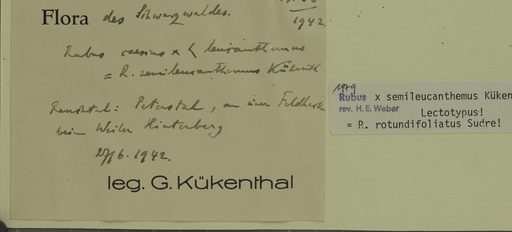 Flora des Schwarzwaldes.
1942
Rubus caesius x leucanthumus
= R. semileucanthumus Kükenth
Renchtal: Peterstal, an einer Feldhecke
beim Weiler Hinterberg
27/6. 1942.
leg. G. Kükenthal
1979
Rubus x semileucanthemus Küken
rev. H. E. Weber Lectotypus!
= R. rotundifoliatus Sudre!